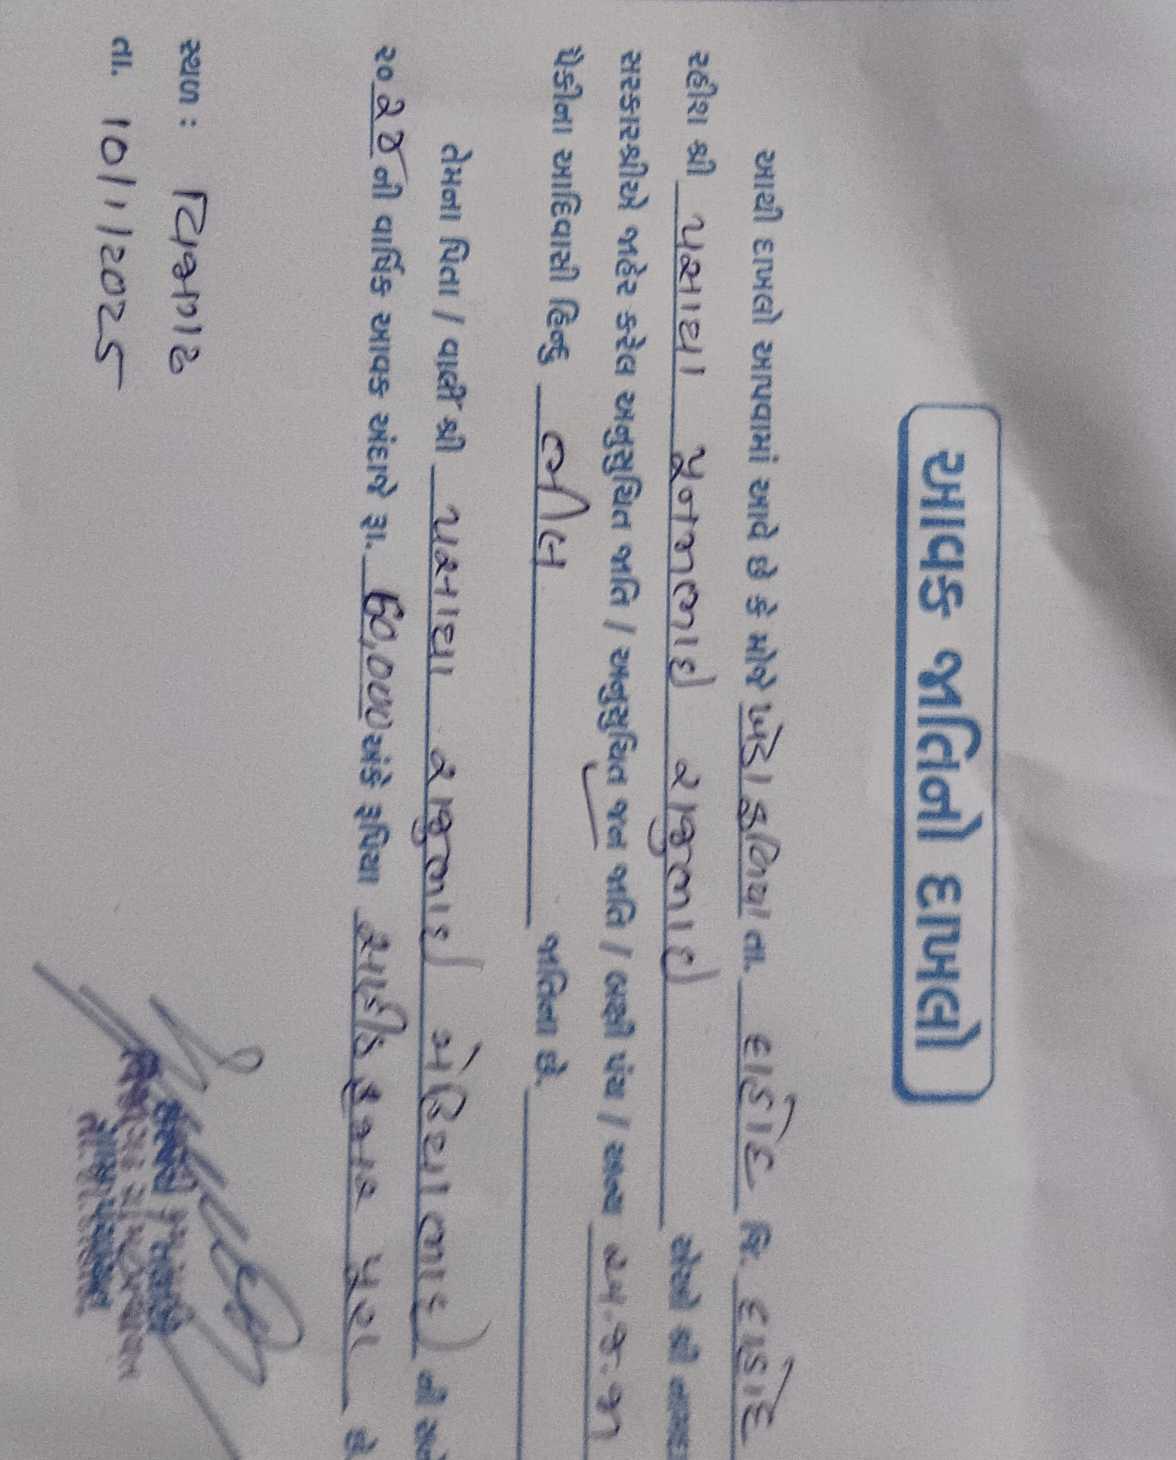 આવક જાતિનો દાખલો
આથી દાખલો આપવામાં આવે છે કે મોજે ખેડા ફળિયા તા. દાહોદ જિ. દાહોદ
રહીશ શ્રી પસાયા પૂનજાભાઇ રાજુભાઇ એઓ શ્રી નાયબ
સરકારશ્રીએ જાહેર કરેલ અનુસુચિત જાતિ / અનુસુચિત જન જાતિ / બક્ષી પંચ / અન્ય અ.જ.જા
પૈકીના આદિવાસી હિન્દુ ભીલ જાતિના છે.
તેમના પિતા / વાલી શ્રી પસાયા રાજુભાઇ ની અને
૨૦૨૪ ની વાર્ષિક આવક અંદાજે રૂા. 60,000 અંકે રૂપિયા સાહીઠ હજાર પૂરા છે
સ્થળ :
તા. 10/1/2025